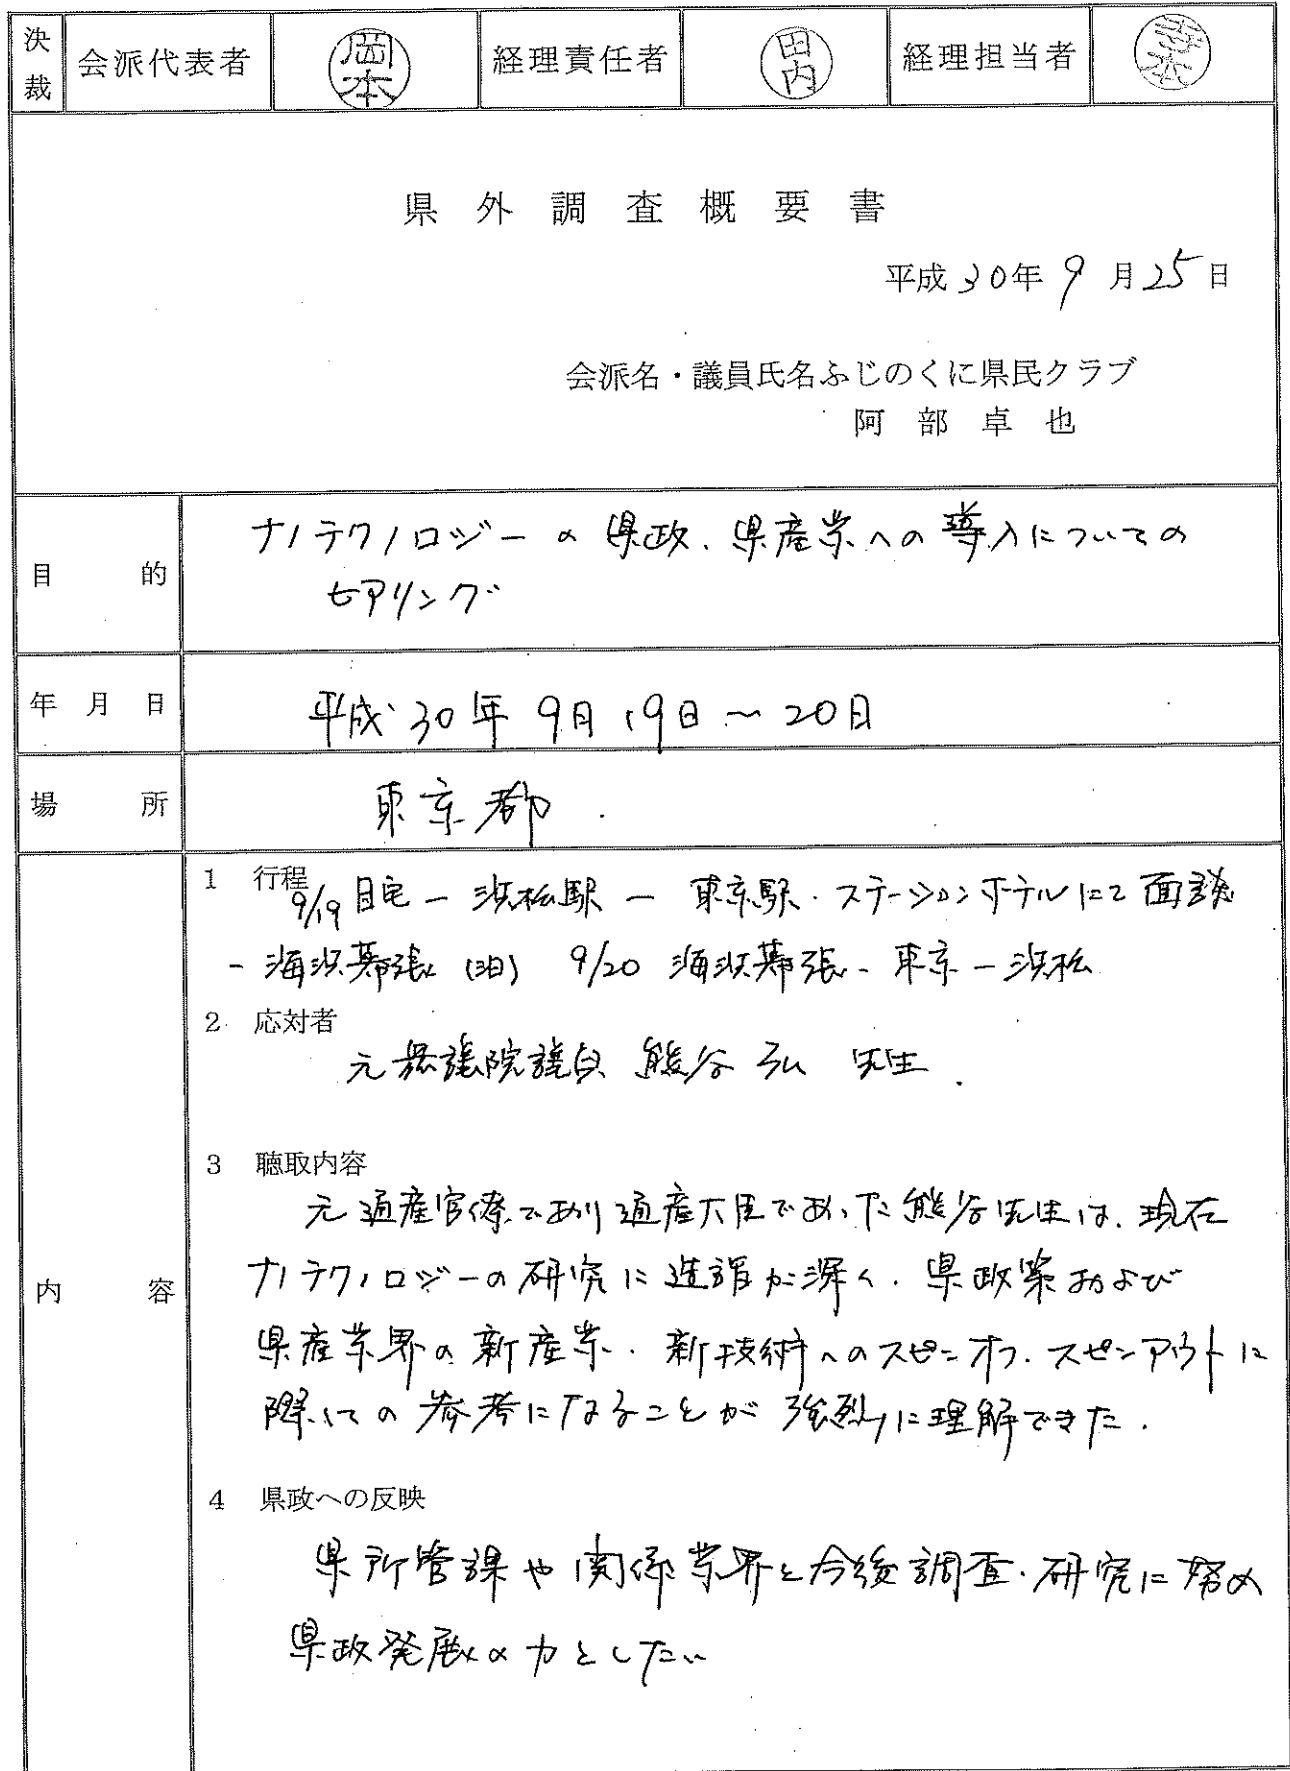 決裁 会派代表者 岡本 経理責任者 田内 経理担当者
県外調査概要書
平成30年9月25日
会派名・議員氏名ふじのくに県民クラブ
阿部卓也
目的 ナノテクノロジーの県政、県産業への導入についての
ヒアリング
年月日 平成30年9月19日〜20日
場所 東京都
内容
1 行程
9/19 自宅ー浜松駅ー東京駅・ステーションホテルにて面談
-海浜幕張(泊) 9/20 海浜幕張-東京-浜松
2 応対者
元衆議院議員 熊谷弘 先生
3 聴取内容
元通産官僚であり通産大臣であった熊谷先生は、現在
ナノテクノロジーの研究に造詣が深く、県政策および
県産業界の新産業・新技術へのスピンオフ・スピンアウトに
際しての参考になることが強烈に理解できた。
4 県政への反映
県所管課や関係業界と今後調査・研究に努め
県政発展の力としたい